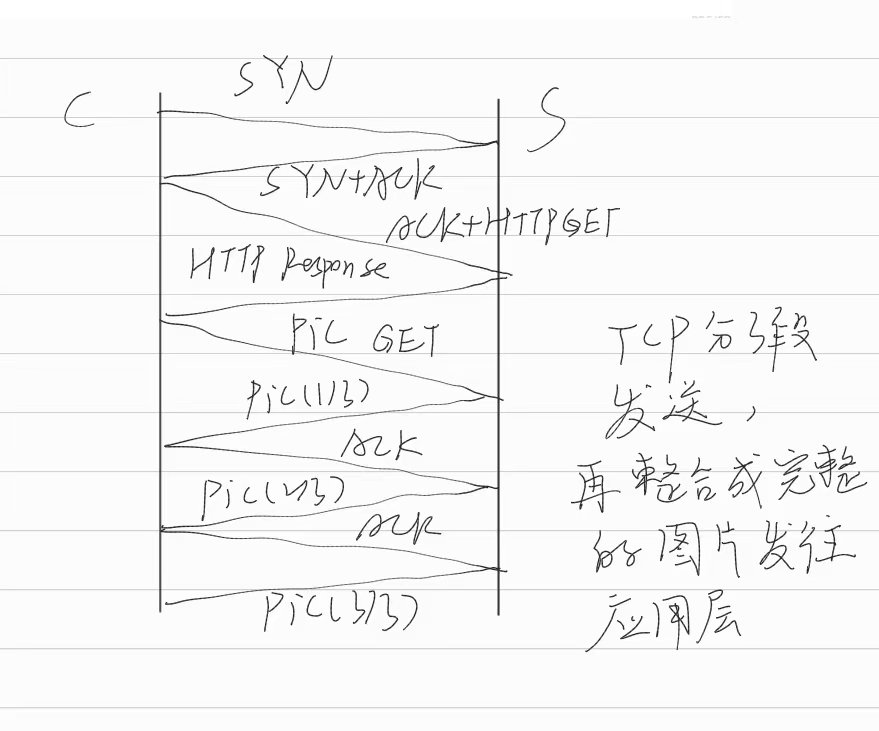 SYN
C
S
SYN+ACK
ACK+HTTPGET
HTTP Response
PiC GET
PiC(1/3)
ACK
PiC(2/3)
ACK
PiC(3/3)
TCP分段
发送，
再整合成完整
的图片发往
应用层